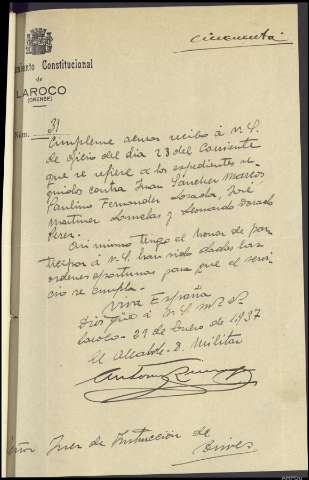 cincuenta
miento Constitucional
de
LAROCO
(ORENSE)
Núm. 31
Cúmpleme acusar recibo á V.S.
de oficio del dia 23 del corriente
que se refiere á los expedientes se
guidos contra Juan Sanchez Marcos
Paulino Fernandez Losada, José
Martinez Lamelas y Leonardo Dorado
Perez.
Asi mismo tengo el honor de par
ticipar á V.S. han sido dadas las
ordenes oportunas para que el servi
cio se cumpla.
Viva España
Dios gûe á V.S. m. a.
Laroco - 29 de Enero de 1937
El Alcalde-D. Militar
Antonio
eñor Juez de Instrucción de
Trives